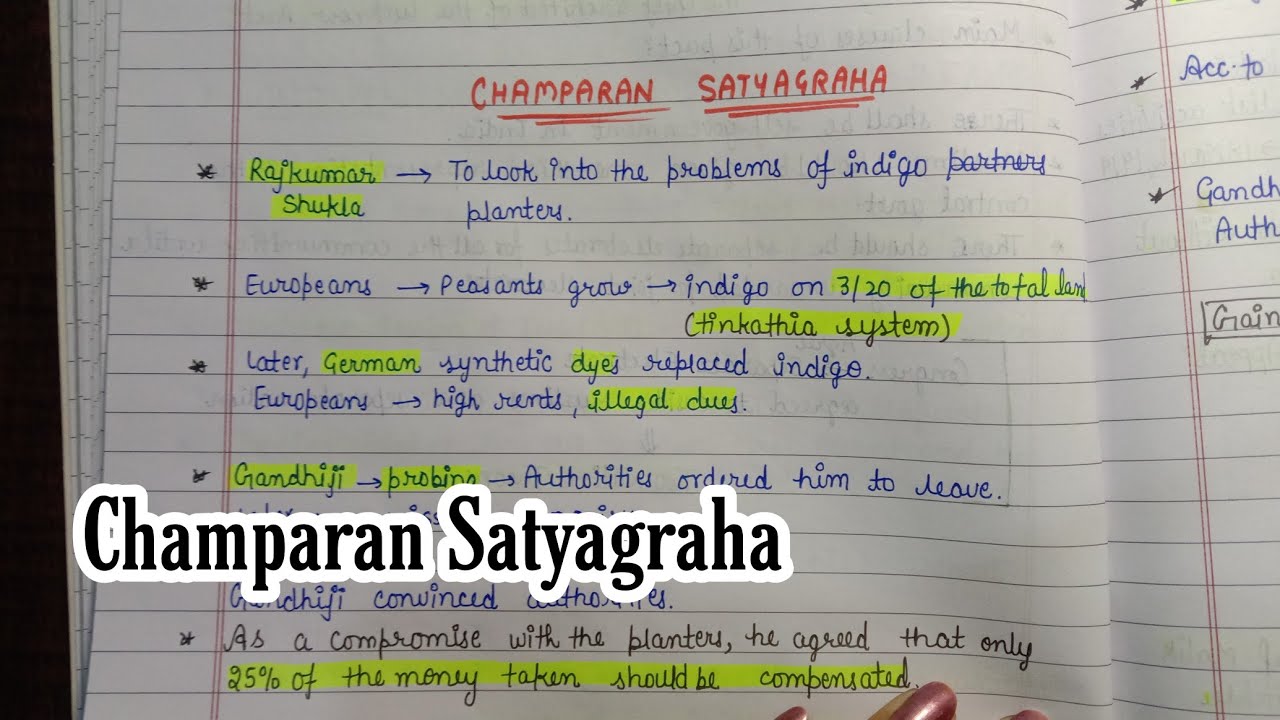 CHAMPARAN SATYAGRAHA
* Rajkumar → To look into the problems of indigo partners
Shukla planters.
* Europeans → Peasants grow → indigo on 3/20 of the total land
(tinkathia system)
* Later, German synthetic dyes replaced indigo.
Europeans → high rents, illegal dues.
* Gandhiji → probing → Authorities ordered him to leave.
Champaran Satyagraha
Gandhiji convinced authorities.
* As a compromise with the planters, he agreed that only
25% of the money taken should be compensated.
* Acc. to
* Gandh
Auth
Gain